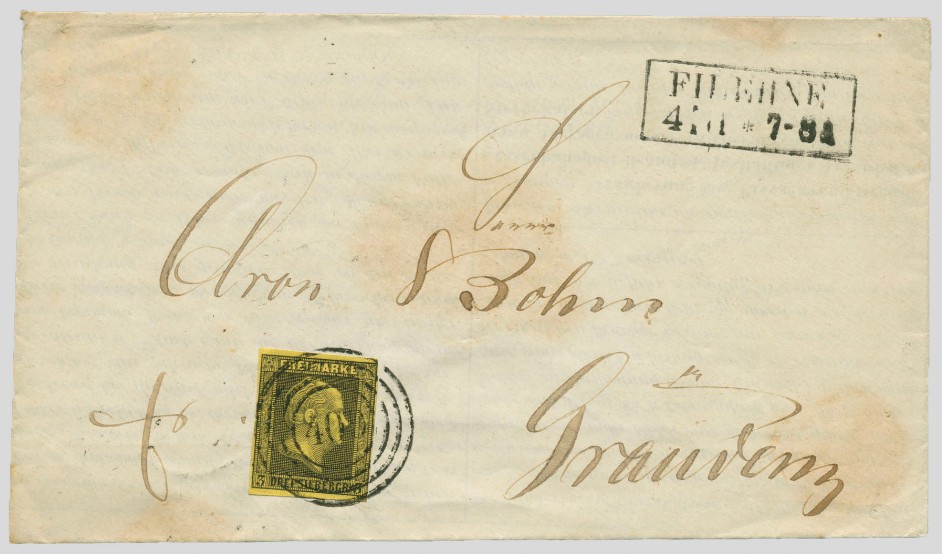 FILEHNE
4 10 * 7-8 A
Herrn
Aron S Bohm
in
Graudenz
FREIMARKE
3 DREI SILBERGR. 3